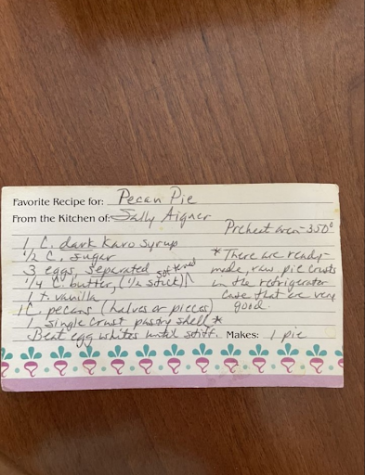 Favorite Recipe for: Pecan Pie
From the Kitchen of: Sally Aigner
Preheat oven - 350°
1 C. dark Karo syrup
1/2 C. sugar
3 eggs, seperated
1/4 C. butter, (1/2 stick) softened
1 t. vanilla
1 C. pecans (halves or pieces)
1 single crust pastry shell *
Beat egg whites until stiff.
* There are ready-
made, raw pie crusts
in the refrigerator
case that are very
good.
Makes: 1 pie